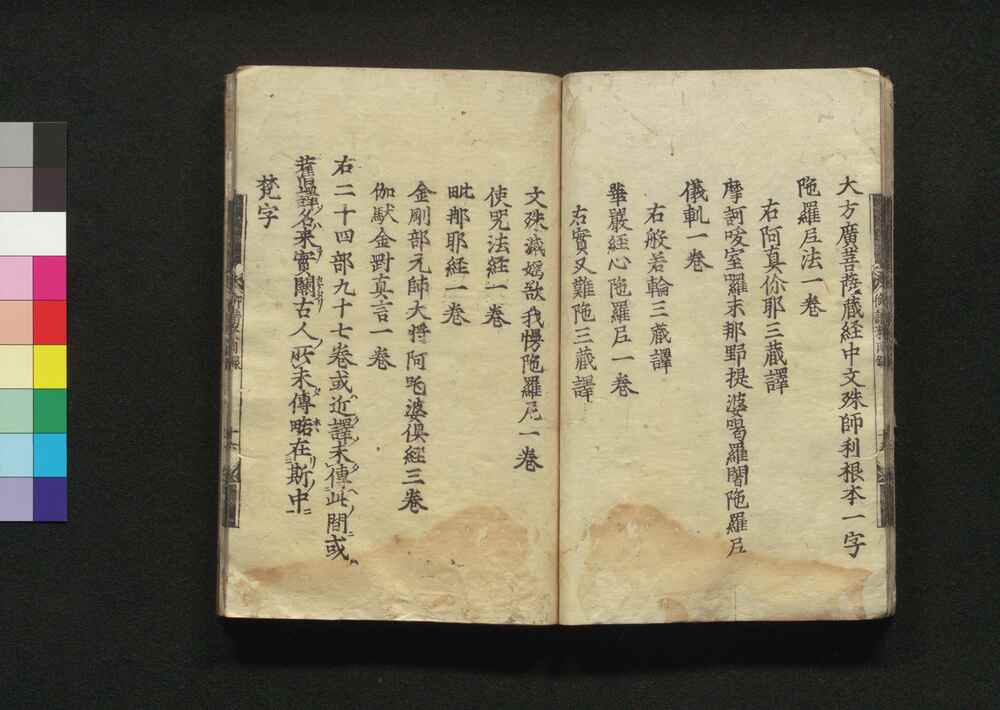 大方廣菩薩藏経中文殊師利根本一字
陁羅尼法一卷
右阿真伱耶三藏譯
摩訶吠室囉末那野提婆喝羅闍陁羅尼
儀軌一卷
右般若輪三藏譯
華嚴経心陁羅尼一卷
右實叉難陁三藏譯
文殊滅婬欲我慢陁羅尼一卷
使咒法経一卷
毗那耶経一卷
金剛部元帥大将阿吒婆俱経三卷
伽馱金對真言一卷
右二十四部九十七卷或近譯未傳此間或
舊譯名来實闕古人所未傳略在斯中
梵字